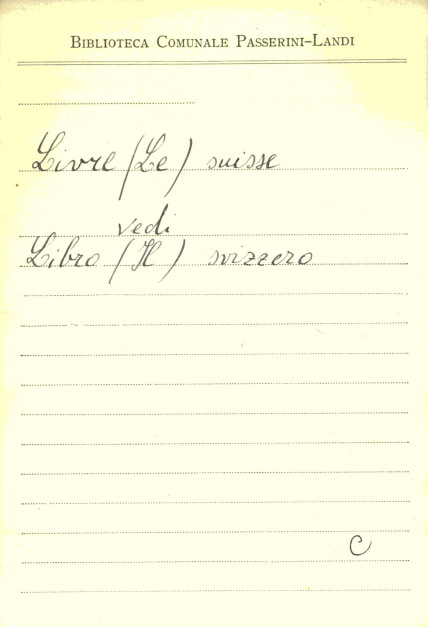 BIBLIOTECA COMUNALE PASSERINI-LANDI
Livre (Le) suisse
vedi
Libro (Il) svizzero
C